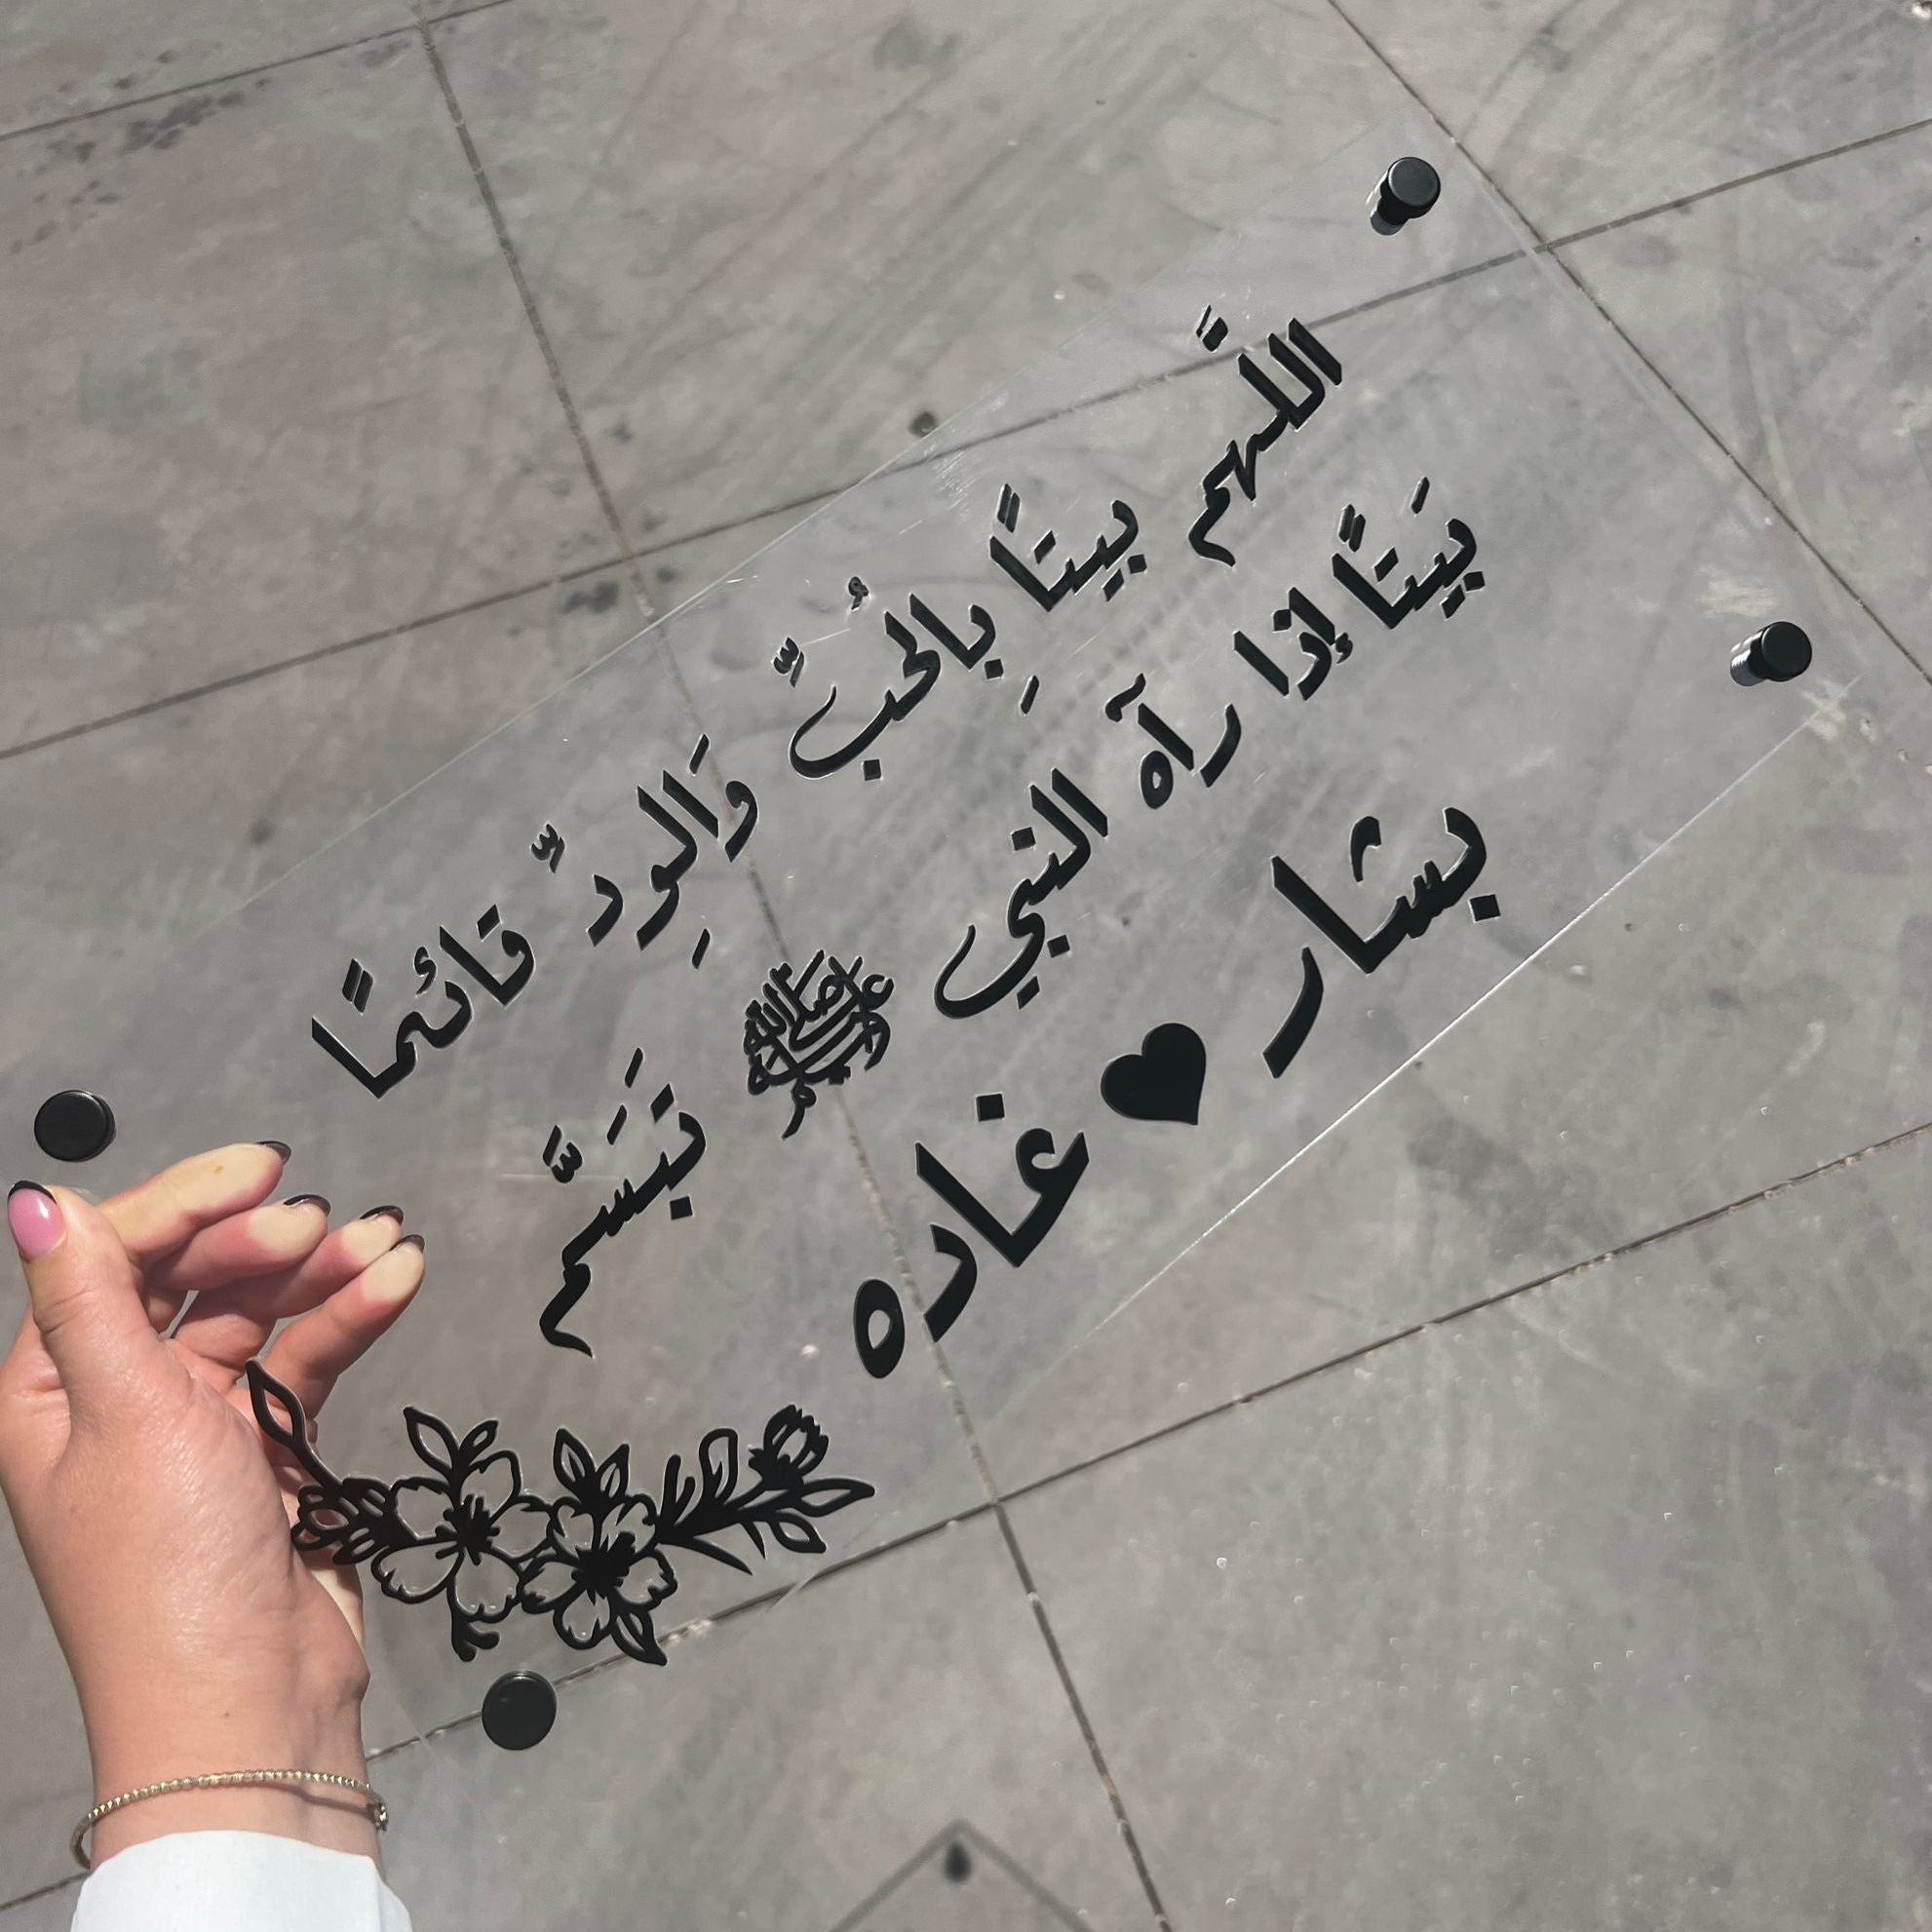 اللَّهم بيتًا بِالحُبِّ وَالوِدِّ قائمًا
بَيتًا إذا رآه النبي ﷺ تَبَسَّم
بشار ♥ غاده